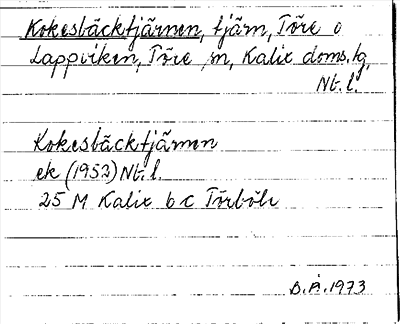 Kokesbäcktjärnen, tjärn, Töre o
Lappviken, Töre sn, Kalix doms.tg,
Nt. l.
Kokesbäcktjärnen
ek (1952) Nt. l.
25 M Kalix b c Törböle
B.Å. 1973